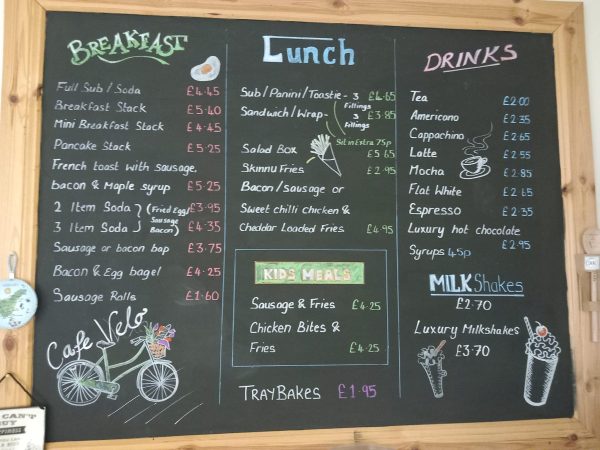 BREAKFAST
Full Sub/Soda £4.45
Breakfast Stack £5.40
Mini Breakfast Stack £4.45
Pancake Stack £5.25
French toast with sausage,
bacon & Maple syrup £5.25
2 Item Soda (Fried Egg/ £3.95
3 Item Soda Sausage Bacon) £4.35
Sausage or bacon bap £3.75
Bacon & Egg bagel £4.25
Sausage Rolls £1.60
Cafe Velo
Lunch
Sub/Panini/Toastie - 3 Fillings £4.65
Sandwich/Wrap - 3 Fillings £3.85
Sit in Extra 75p
Salad Box £5.65
Skinny Fries £2.95
Bacon/Sausage or
Sweet chilli chicken &
Cheddar Loaded Fries £4.95
KIDS MEALS
Sausage & Fries £4.25
Chicken Bites &
Fries £4.25
TRAYBAKES £1.95
DRINKS
Tea £2.00
Americano £2.35
Cappachino £2.65
Latte £2.55
Mocha £2.85
Flat White £2.65
Espresso £2.35
Luxury hot chocolate
£2.95
Syrups 45p
MILKShakes
£2.70
Luxury Milkshakes
£3.70
CAN'T